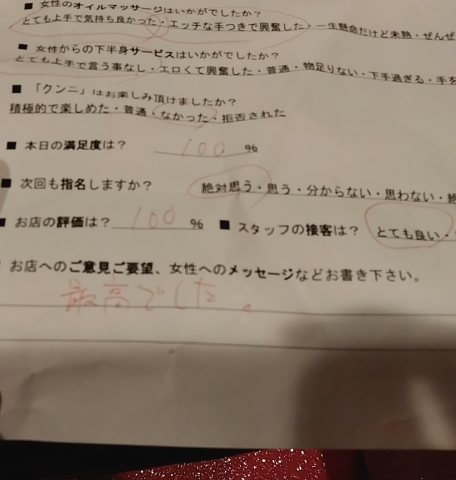 ■ 女性のオイルマッサージはいかがでしたか？
とても上手で気持ち良かった・エッチな手つきで興奮した・一生懸命だけど未熟・ぜんぜ
■ 女性からの下半身サービスはいかがでしたか？
とても上手で言う事なし・エロくて興奮した・普通・物足りない・下手過ぎる・手を
■ 「クンニ」はお楽しみ頂けましたか？
積極的で楽しめた・普通・なかった・拒否された
■ 本日の満足度は？ 100 %
■ 次回も指名しますか？ 絶対思う・思う・分からない・思わない・絶
■ お店の評価は？ 100 % ■ スタッフの接客は？ とても良い・
お店へのご意見ご要望、女性へのメッセージなどお書き下さい。
最高でした。